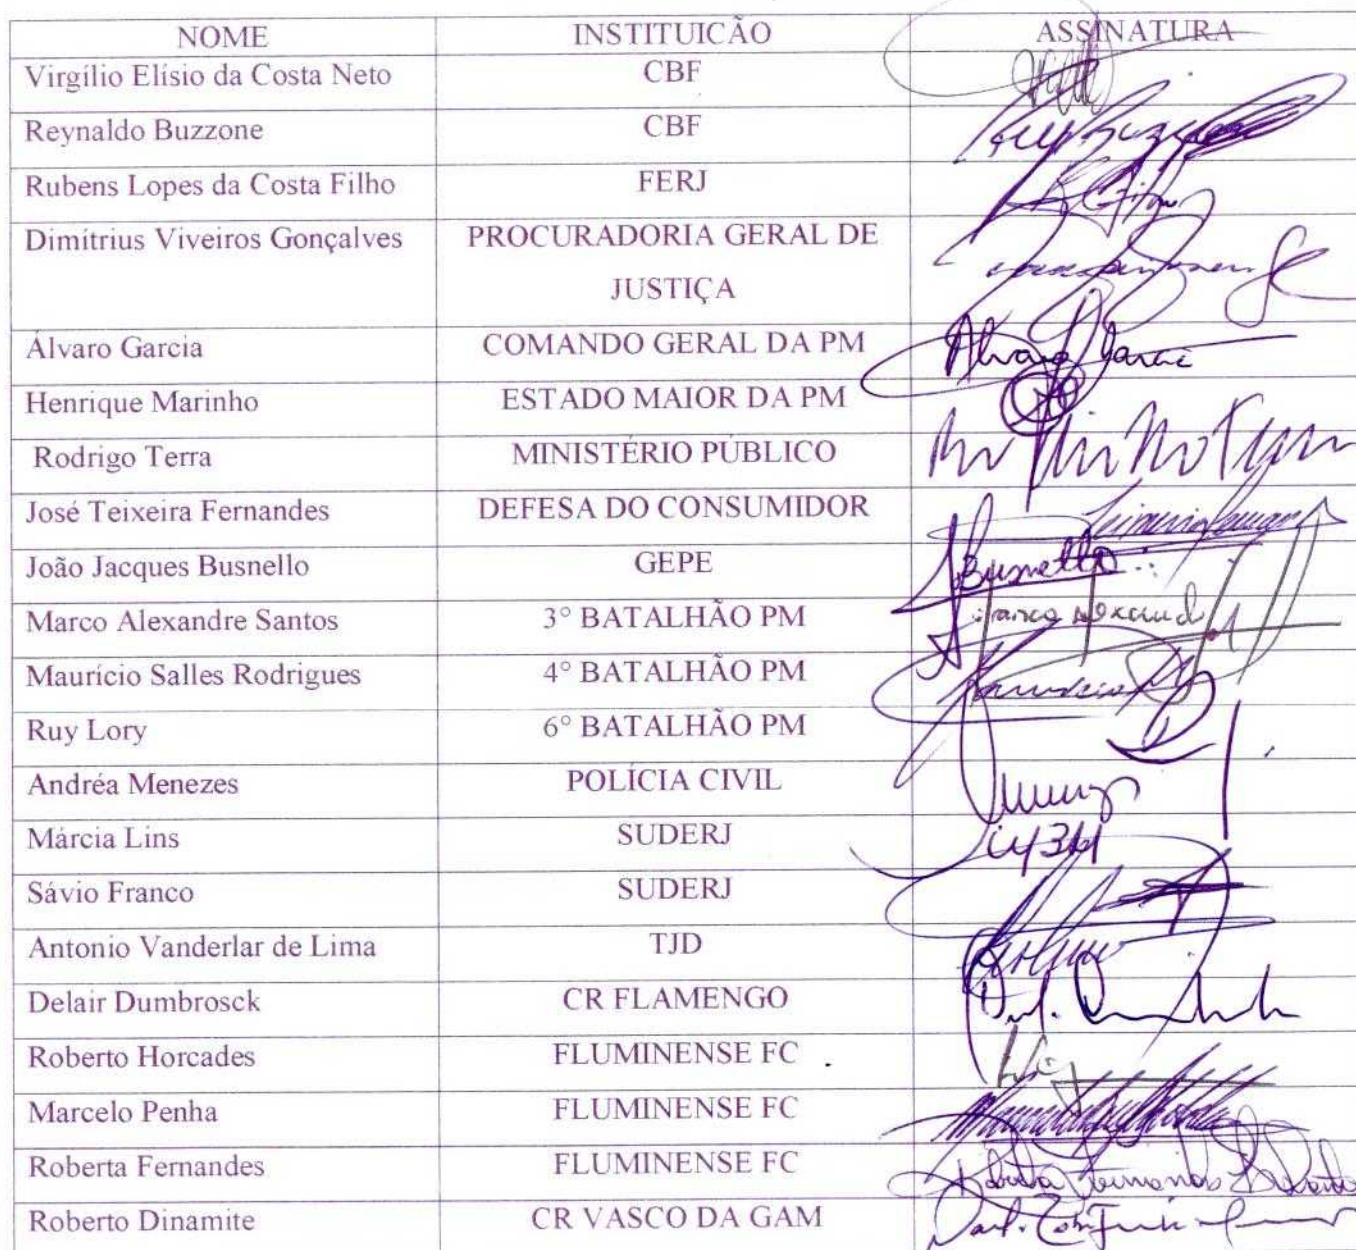 NOME INSTITUICÃO ASSINATURA
Virgílio Elísio da Costa Neto CBF
Reynaldo Buzzone CBF
Rubens Lopes da Costa Filho FERJ
Dimítrius Viveiros Gonçalves PROCURADORIA GERAL DE
JUSTIÇA
Álvaro Garcia COMANDO GERAL DA PM Alvaro Garcia
Henrique Marinho ESTADO MAIOR DA PM
Rodrigo Terra MINISTÉRIO PÚBLICO
José Teixeira Fernandes DEFESA DO CONSUMIDOR
João Jacques Busnello GEPE JBusnello
Marco Alexandre Santos 3° BATALHÃO PM
Maurício Salles Rodrigues 4° BATALHÃO PM
Ruy Lory 6° BATALHÃO PM
Andréa Menezes POLÍCIA CIVIL
Márcia Lins SUDERJ
Sávio Franco SUDERJ
Antonio Vanderlar de Lima TJD
Delair Dumbrosck CR FLAMENGO
Roberto Horcades FLUMINENSE FC
Marcelo Penha FLUMINENSE FC
Roberta Fernandes FLUMINENSE FC Roberta Fernandes
Roberto Dinamite CR VASCO DA GAM